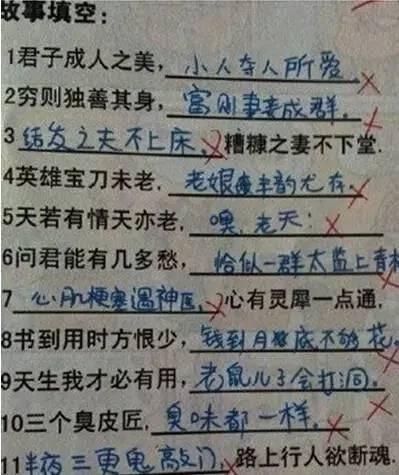 故事填空：
1君子成人之美，小人夺人所爱。
2穷则独善其身，富则妻妾成群。
3结发之夫不上床，糟糠之妻不下堂.
4英雄宝刀未老，老娘丰韵尤存。
5天若有情天亦老，噢，老天！
6问君能有几多愁，恰似一群太监上青楼
7心肌梗塞遇神医，心有灵犀一点通，
8书到用时方恨少，钱到月底不够花。
9天生我才必有用，老鼠儿子会打洞。
10三个臭皮匠，臭味都一样。
11半夜三更鬼敲门，路上行人欲断魂.